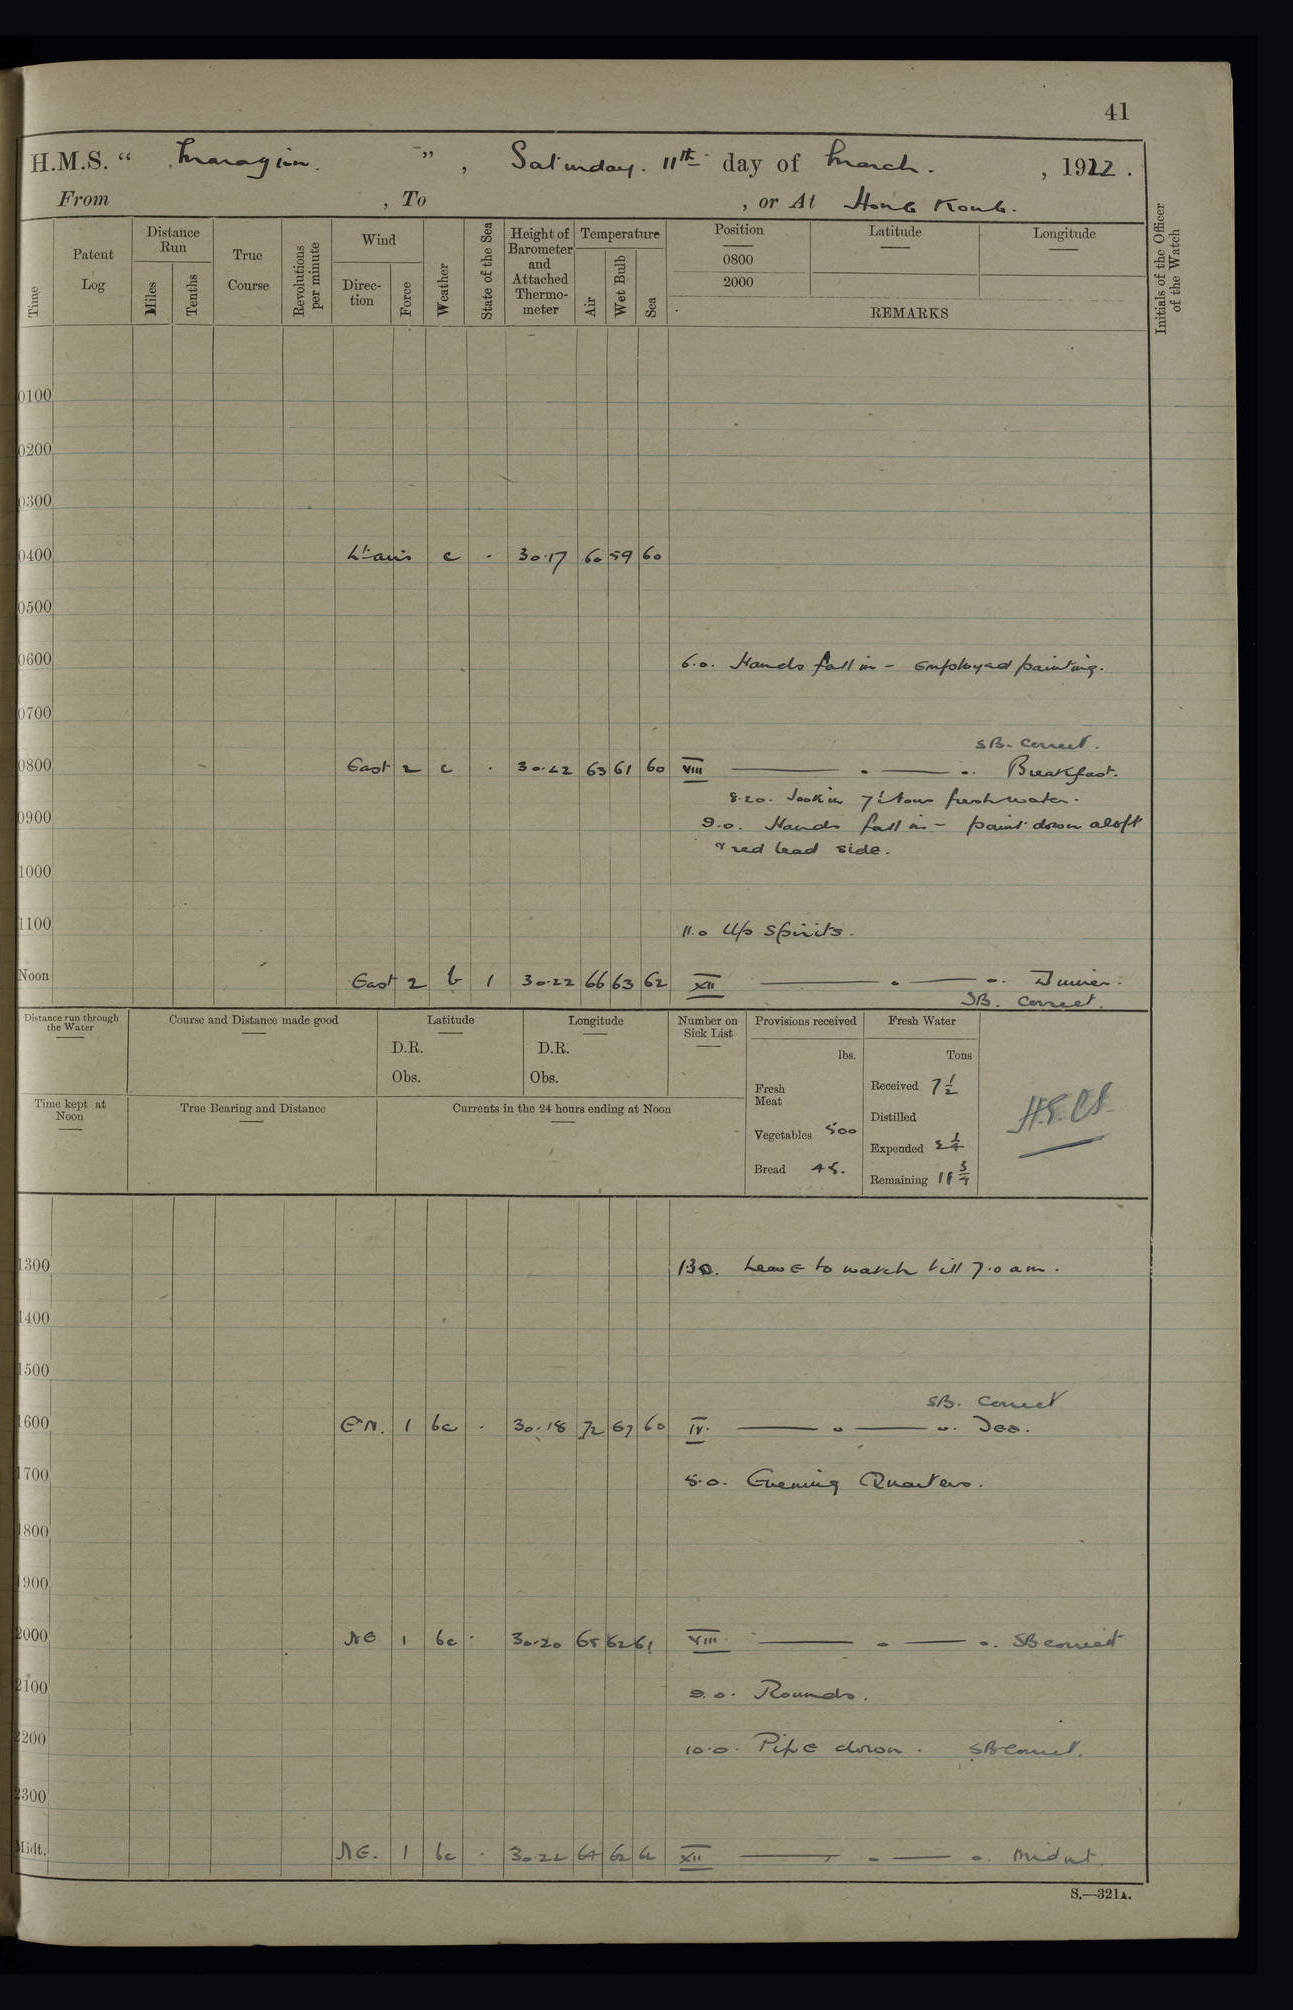 41
H.M.S. " Marazion. ", Saturday. 11th day of March. , 1922.
From , To , or At Hong Kong.
Time
Patent Log
Distance Run
Miles
Tenths
True Course
Revolutions per minute
Wind
Direction
Force
Weather
State of the Sea
Height of Barometer and Attached Thermometer
Temperature
Air
Wet Bulb
Sea
Position
0800
2000
Latitude
Longitude
REMARKS
Initials of the Officer of the Watch
0100
0200
0300
0400 Lt airs c . 30.17 60 59 60
0500
0600 6.0. Hands fall in - Employed painting.
0700
SB. Correct.
0800 East 2 c . 30.22 63 61 60 VIII ——— . ——— .. Breakfast.
8.20. Took in 7½ tons fresh water.
0900 9.0. Hands fall in - paint down aloft
& red lead side.
1000
1100 11.0 Up Spirits.
Noon East 2 b 1 30.22 66 63 62 XII ——— . ——— .. Dinner.
SB. Correct.
Distance run through the Water
Course and Distance made good
Latitude
D.R.
Obs.
Longitude
D.R.
Obs.
Number on Sick List
Provisions received
lbs.
Fresh Meat
Vegetables 500
Bread 45.
Fresh Water
Tons
Received 7½
Distilled
Expended
Remaining
Time kept at Noon
True Bearing and Distance
Currents in the 24 hours ending at Noon
1300 130. Leave to watch till 7.0 am.
1400
1500
SB. Correct
1600 E'N. 1 bc . 30.18 72 67 60 IV. ——— . ——— .. Tea.
1700 5.0. Evening Quarters.
1800
1900
2000 NE 1 bc . 30.20 65 62 61 VIII ——— . ——— .. SB correct
2100 9.0. Rounds.
2200 10.0. Pipe down. SB Correct.
2300
Midt. NE. 1 bc . 30.22 64 62 XII ——— . ——— .. Midnt.
S.—321A.